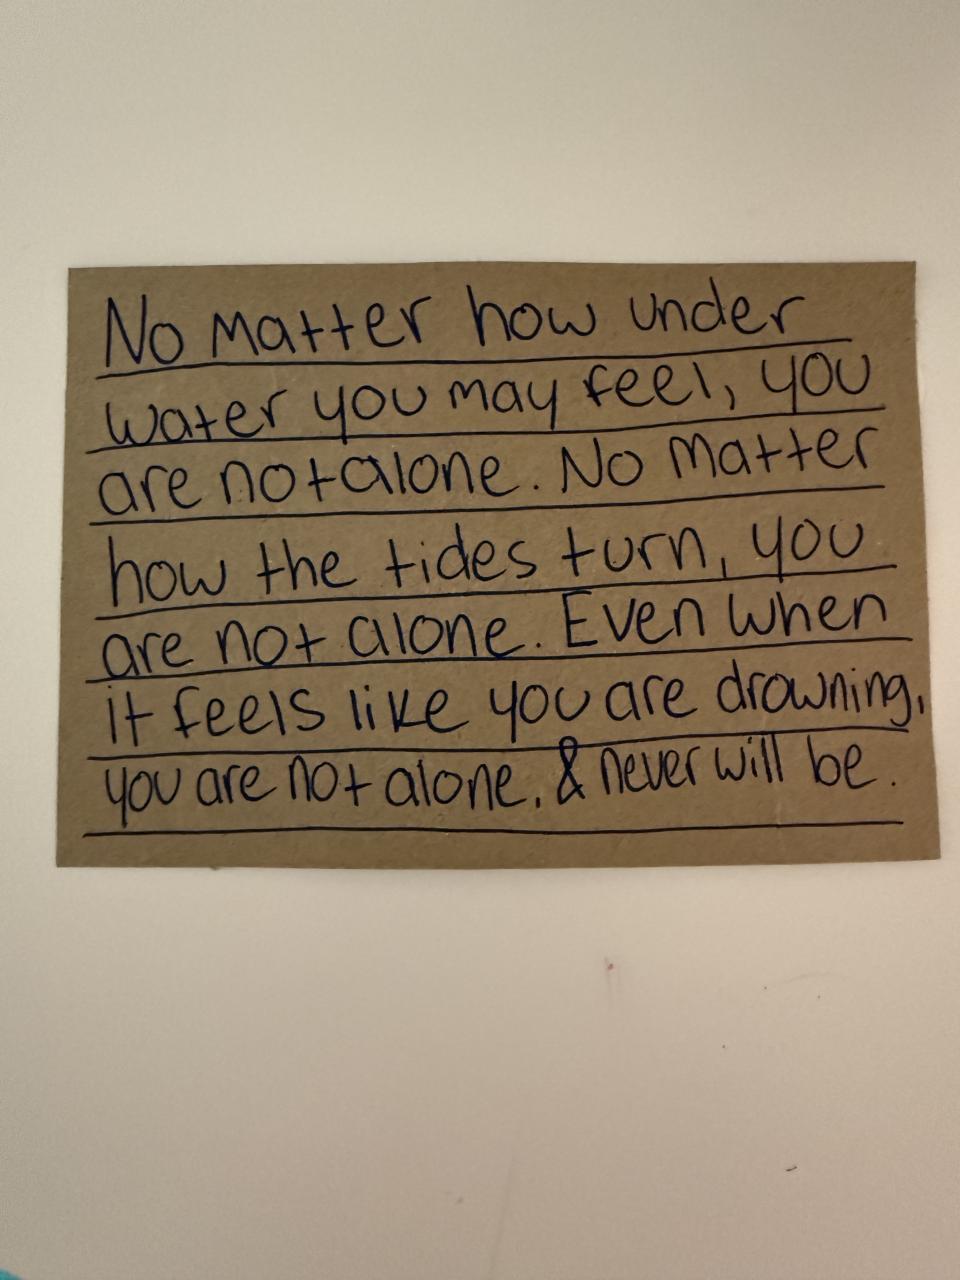 No matter how under
water you may feel, you
are not alone. No matter
how the tides turn, you
are not alone. Even when
it feels like you are drowning,
you are not alone. & never will be.